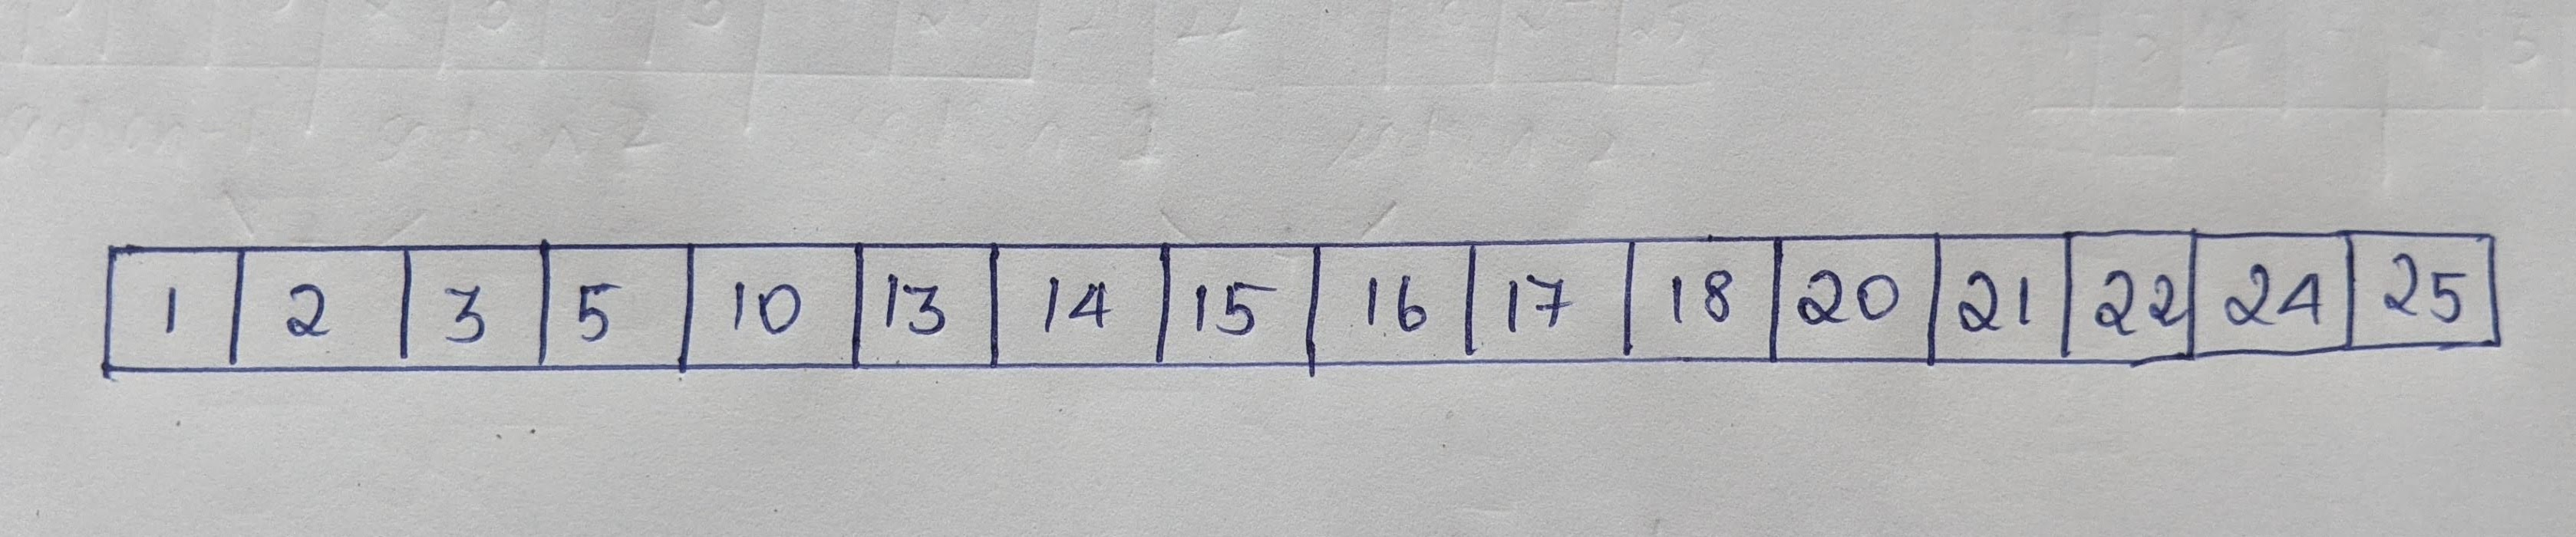 1 2 3 5 10 13 14 15 16 17 18 20 21 22 24 25